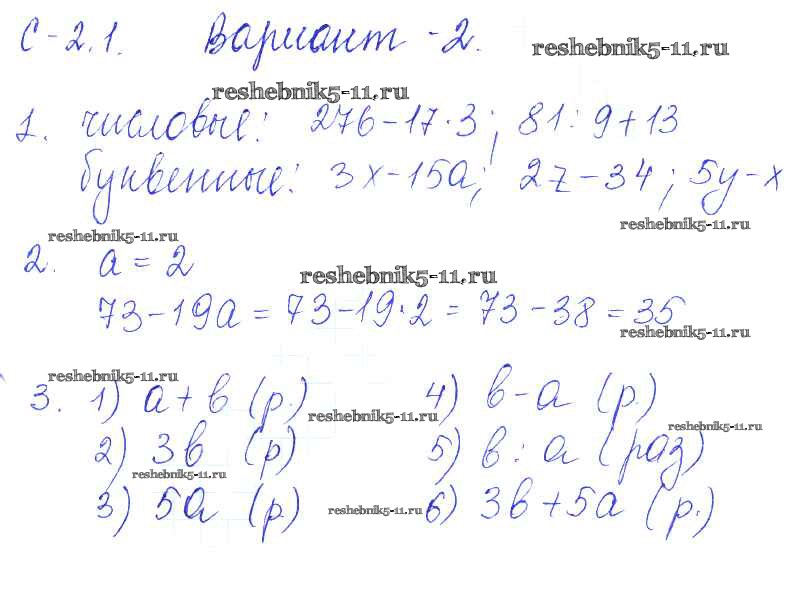 С-2.1. Вариант-2. reshebnik5-11.ru
reshebnik5-11.ru
1. числовые: 276-17·3; 81:9+13
буквенные: 3x-15a; 2z-34; 5y-x
reshebnik5-11.ru reshebnik5-11.ru
2. a=2 reshebnik5-11.ru
73-19a=73-19·2=73-38=35
reshebnik5-11.ru
reshebnik5-11.ru
3. 1) a+b (р.) reshebnik5-11.ru 4) b-a (р.)
reshebnik5-11.ru
2) 3b (р) 5) b:a (раз)
reshebnik5-11.ru
3) 5a (р.) reshebnik5-11.ru 6) 3b+5a (р.)